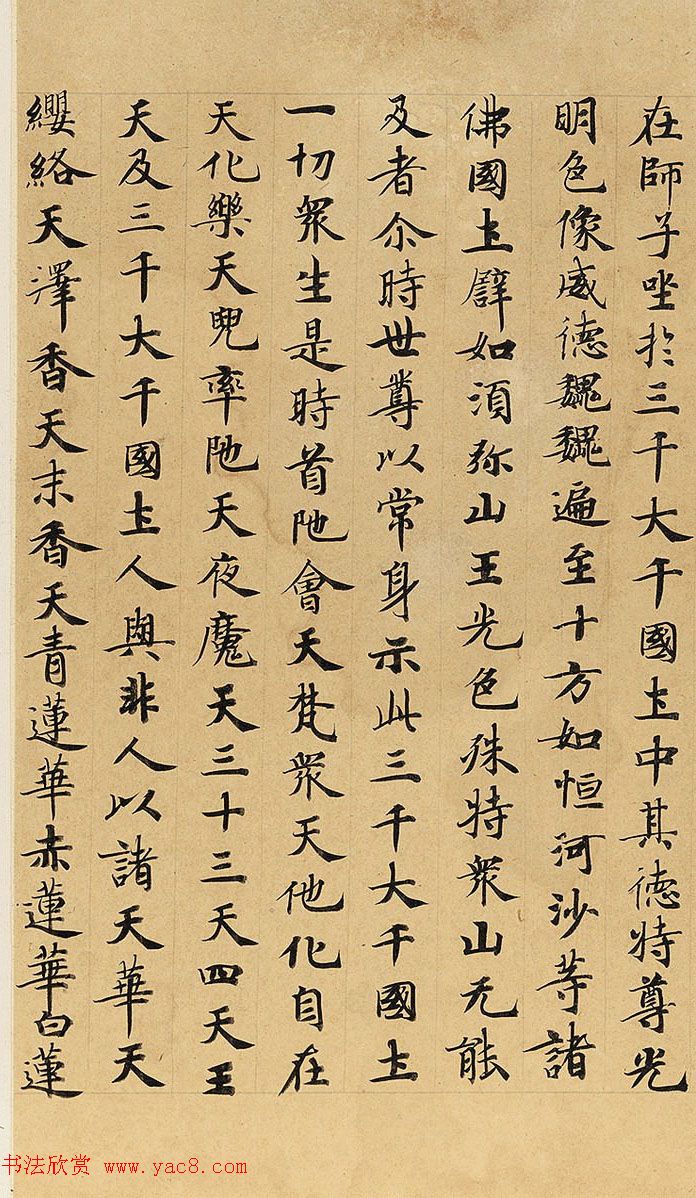 在師子坐於三千大千國土中其德特尊光
明色像威德巍巍遍至十方如恒河沙等諸
佛國土譬如須弥山王光色殊特衆山无能
及者尒時世尊以常身示此三千大千國土
一切衆生是時首陁會天梵衆天他化自在
天化樂天兜率陁天夜魔天三十三天四天王
天及三千大千國土人與非人以諸天華天
纓絡天澤香天末香天青蓮華赤蓮華白蓮
书法欣赏 www.yac8.com